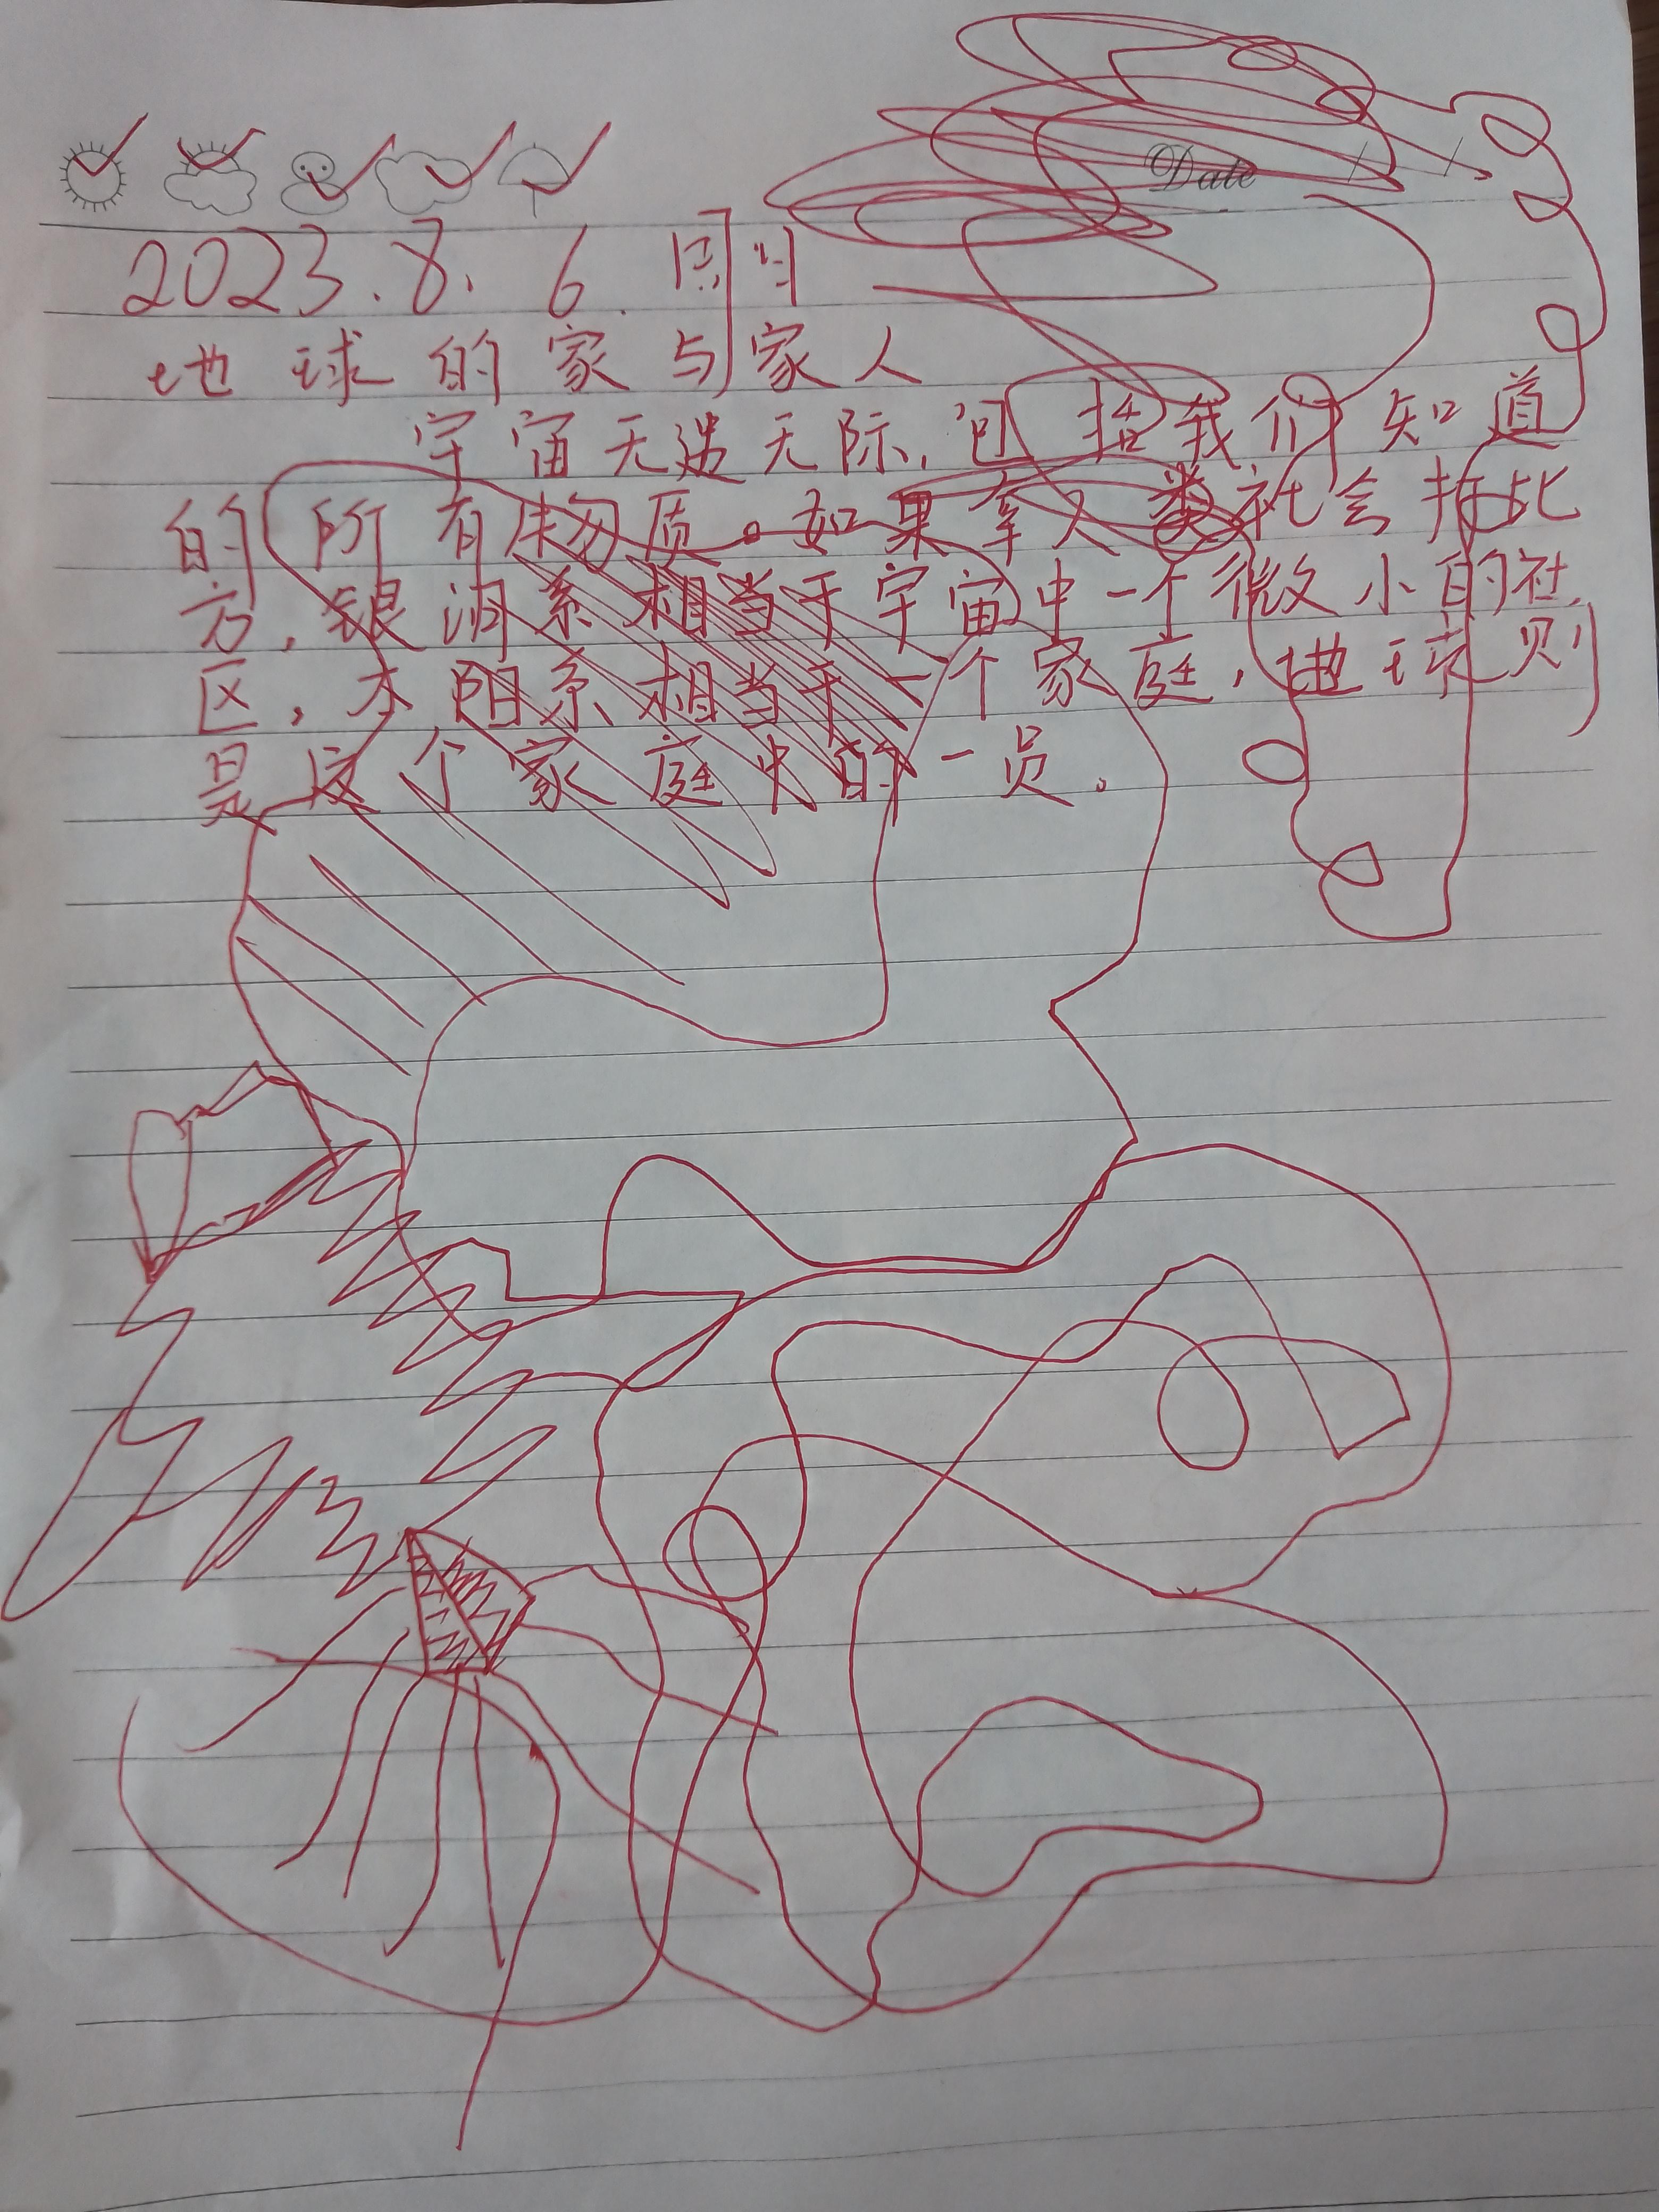 Date / /
2023.8.6.周日
地球的家与家人
宇宙无边无际,包括我们知道
的所有物质。如果拿人类社会打比
方,银河系相当于宇宙中一个微小的社
区,太阳系相当于一个家庭,地球则
是这个家庭中的一员。